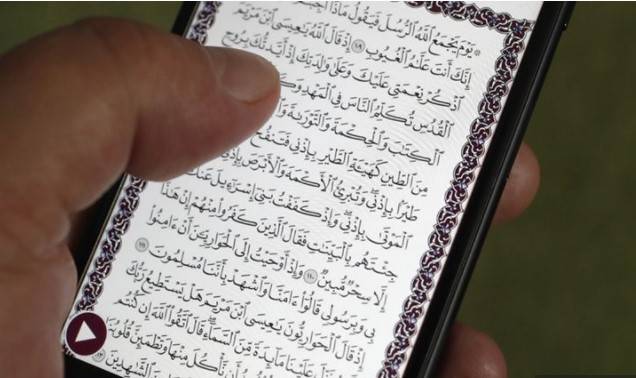 ۞ يَوْمَ يَجْمَعُ ٱللَّهُ ٱلرُّسُلَ فَيَقُولُ مَاذَآ
إِنَّكَ أَنتَ عَلَّـٰمُ ٱلْغُيُوبِ ١٠٩ إِذْ قَالَ ٱللَّهُ يَـٰعِيسَى ٱبْنَ مَرْيَمَ
ٱذْكُرْ نِعْمَتِى عَلَيْكَ وَعَلَىٰ وَٰلِدَتِكَ إِذْ أَيَّدتُّكَ بِرُوحِ
ٱلْقُدُسِ تُكَلِّمُ ٱلنَّاسَ فِى ٱلْمَهْدِ
ٱلْكِتَـٰبَ وَٱلْحِكْمَةَ وَٱلتَّوْرَىٰةَ
مِنَ ٱلطِّينِ كَهَيْـَٔةِ ٱلطَّيْرِ بِإِذْنِى فَتَنفُخُ
طَيْرًۢا بِإِذْنِى ۖ وَتُبْرِئُ ٱلْأَكْمَهَ وَٱلْأَبْرَصَ
ٱلْمَوْتَىٰ بِإِذْنِى ۖ وَإِذْ كَفَفْتُ بَنِىٓ إِسْرَٰٓءِيلَ عَنكَ
جِئْتَهُم بِٱلْبَيِّنَـٰتِ فَقَالَ ٱلَّذِينَ كَفَرُوا۟ مِنْهُمْ إِنْ هَـٰذَآ
إِلَّا سِحْرٌ مُّبِينٌ ١١٠ وَإِذْ أَوْحَيْتُ إِلَى ٱلْحَوَارِيِّـۧنَ أَنْ ءَامِنُوا۟
بِى وَبِرَسُولِى قَالُوٓا۟ ءَامَنَّا وَٱشْهَدْ بِأَنَّنَا مُسْلِمُونَ ١١١
إِذْ قَالَ ٱلْحَوَارِيُّونَ يَـٰعِيسَى ٱبْنَ مَرْيَمَ هَلْ يَسْتَطِيعُ رَبُّكَ
عَلَيْنَا مَآئِدَةً مِّنَ ٱلسَّمَآءِ ۖ قَالَ ٱتَّقُوا۟ ٱللَّهَ إِن كُنتُم
أَن نَّأْكُلَ مِنْهَا وَتَطْمَئِنَّ قُلُوبُنَا
ٱلشَّـٰهِدِينَ